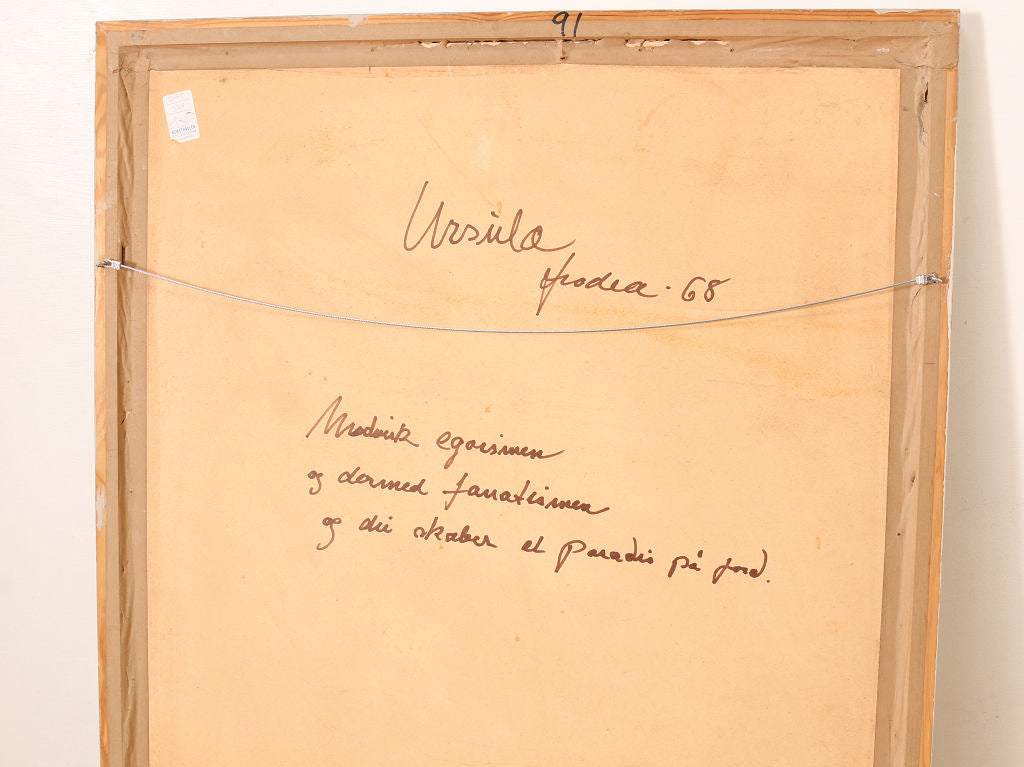 91
KUNSTHALLEN
Ursula
frodea · 68
Modvirk egoismen
og dermed fanatismen
og du skaber et paradis på jord.